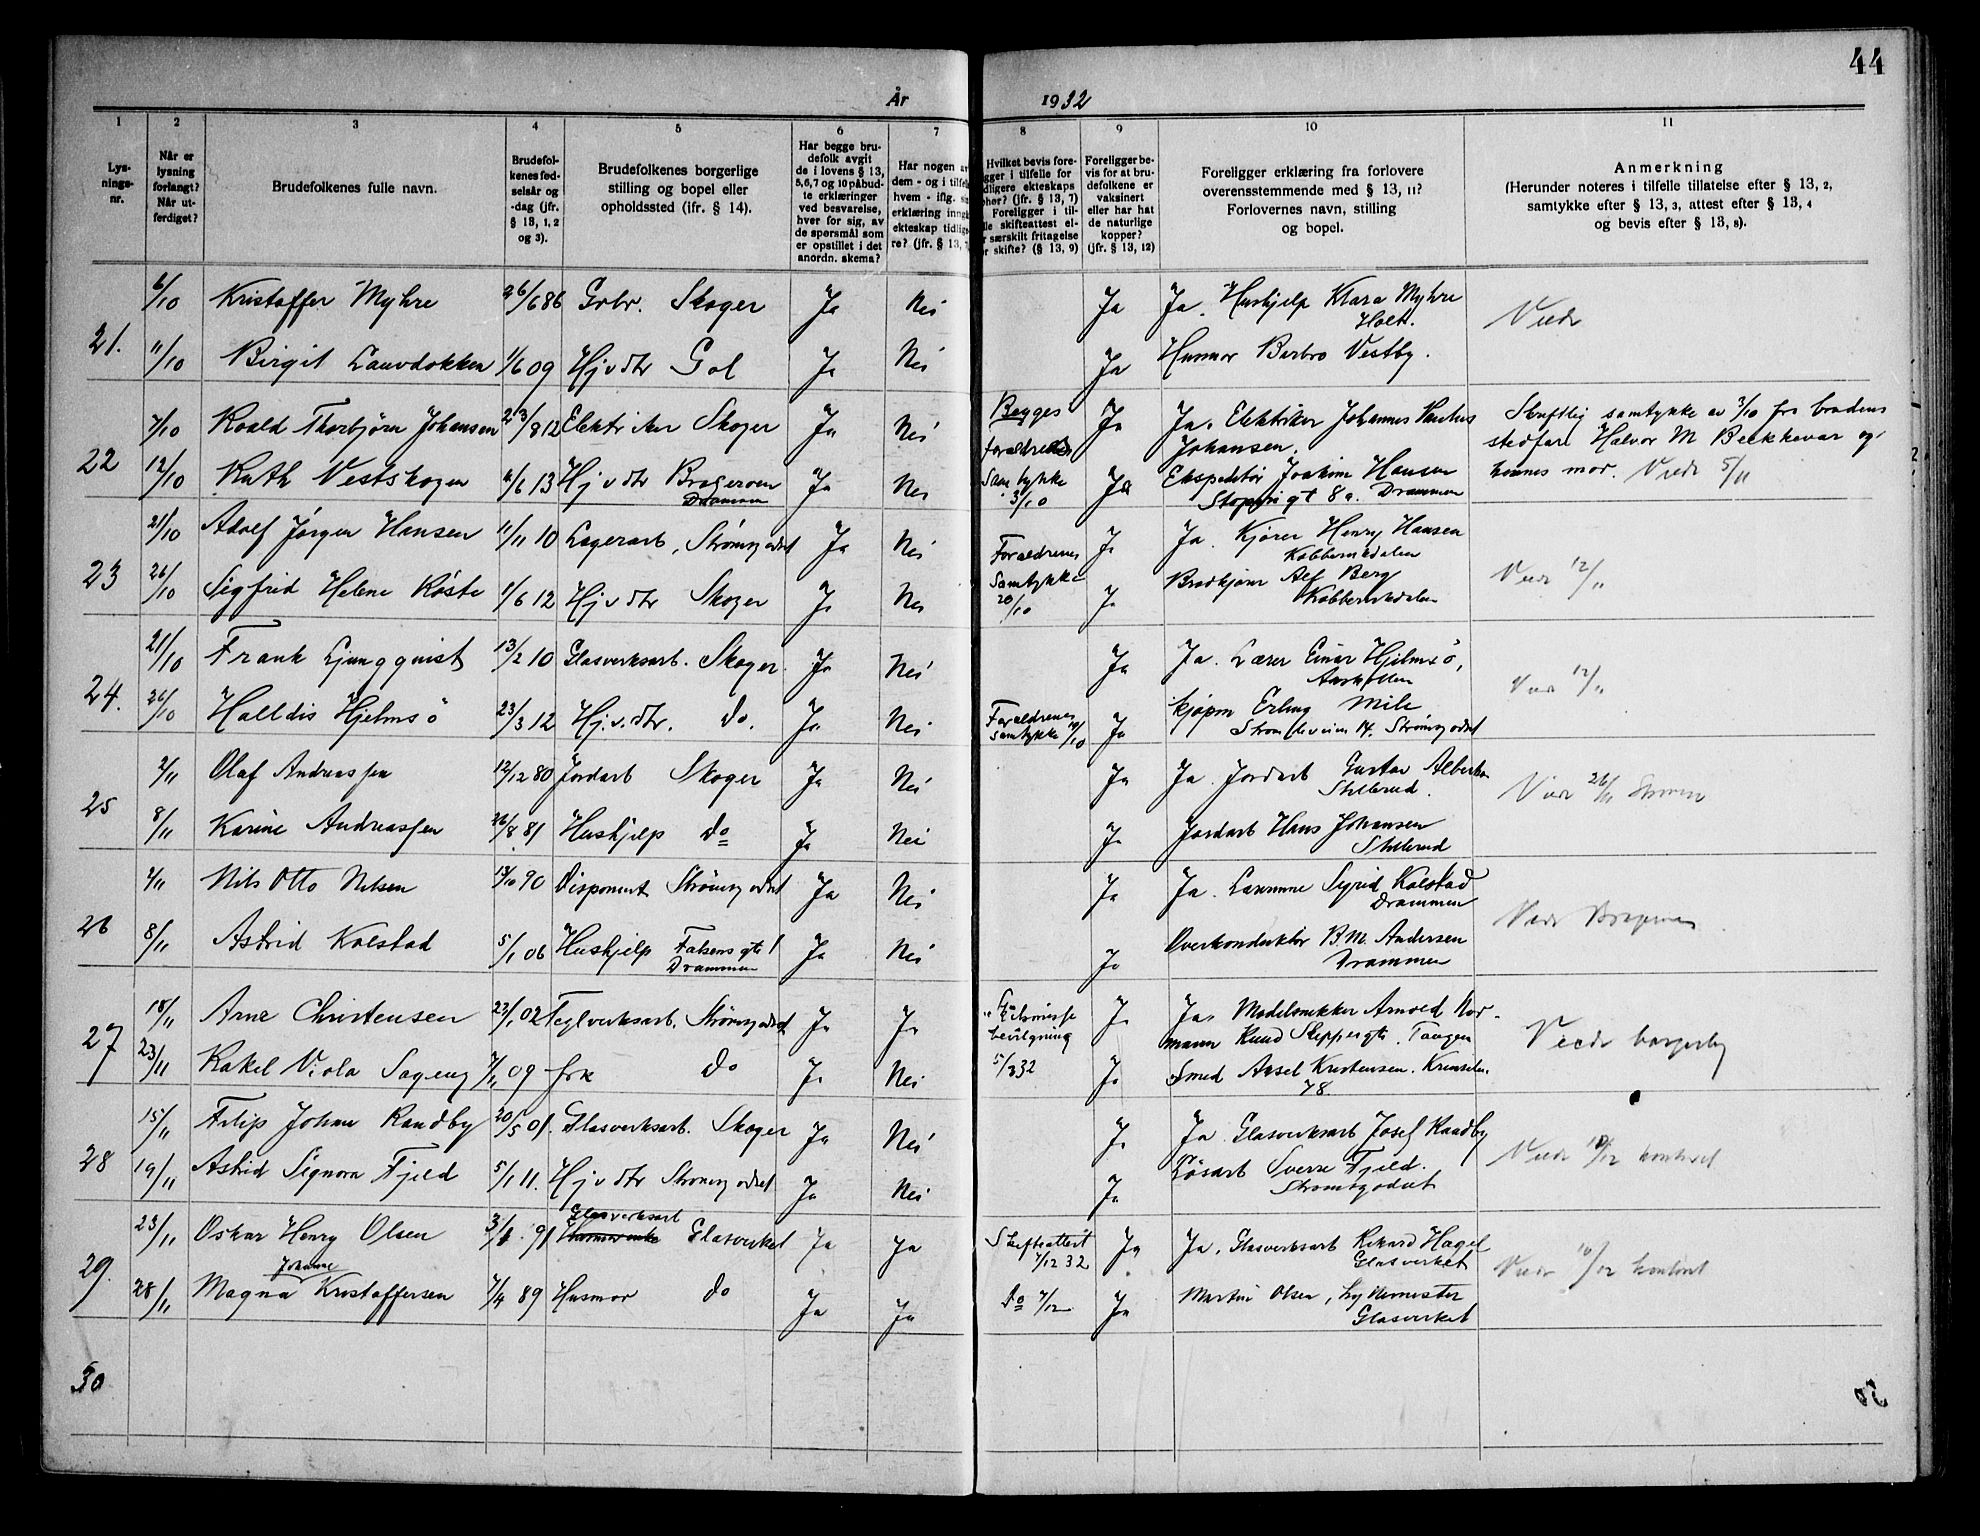 44
År 1932
1 2 3 4 5 6 7 8 9 10 11
Lys-
nings-
nr.
Når er
lysning
forlangt?
Når ut-
ferdiget?
Brudefolkenes fulle navn.
Brudefol-
kenes fød-
selsår og
-dag (jfr.
§ 13, 1, 2
og 3).
Brudefolkenes borgerlige
stilling og bopel eller
opholdssted (ifr. § 14).
Har begge bru-
defolk avgit
de i lovens § 13,
5,6,7 og 10 påbud-
te erklæringer
ved besvarelse,
hver for sig, av
de spørsmål som
er opstillet i det
anordn. skema?
Har nogen
dem - og i tilfel
hvem - iflg.
erklæring inng
ekteskap tidlig
re? (jfr. § 13,
Hvilket bevis fore-
gger i tilfelle for
dligere ekteskaps
phør? (jfr. § 13, 7)
Foreligger i til-
lle skifteattest el-
r særskilt fritagelse
r skifte? (§ 13, 9)
Foreligger be-
vis for at bru-
defolkene er
vaksinert
eller har hat
de naturlige
kopper?
(jfr. § 13, 12)
Foreligger erklæring fra forlovere
overensstemmende med § 13, 11?
Forlovernes navn, stilling
og bopel.
Anmerkning
(Herunder noteres i tilfelle tillatelse efter § 13, 2,
samtykke efter § 13, 3, attest efter § 13, 4
og bevis efter § 13, 8).
21. 6/10 Kristoffer Myhre 26/6 86 Gbr. Skoger Ja Nei Ja Ja. Hushjelp Klara Myhre
Holt.
Viede
11/10 Birgit Lauvdokken 1/6 09 Hj v dtr Gol Ja Nei Ja Husmor Barbro Vestby.
22 7/10 Roald Thorbjørn Johansen 23/8 12 Elektriker Skoger Ja Nei Begges Ja Ja. Elektriker Johannes
foreldres Johansen.
Skriftlig samtykke av 3/10 fra brudens
stedfar Halvor M Bekkevar og
hennes mor. Viede 5/11
12/10 Ruth Vestskogen 6/6 13 Hj v dtr Brageroen
Drammen
Ja Nei Samtykke
3/10
Ja Ekspeditør Joakim Hansen
8a. Drammen
23 21/10 Adolf Jørgen Hansen 11/11 10 Lagerarb, Strømsgodset Ja Nei Foreldrenes Ja Ja. Kjører Henry Hansen
Kobbervikdalen
Viede 12/11
26/10 Sigfrid Helene Røste 1/6 12 Hj v dtr Skoger Ja Nei Samtykke
20/10
Ja Brødkjører Alf Berg
Kobbervikdalen
24. 21/10 Frank Ljungquist 13/2 10 Glasverksarb. Skoger. Ja Nei Ja Ja. Einar Hjelmsö,
12/11
26/10 Halldis Hjelmsö 23/3 12 Hj.v.dtr. do. Ja Nei Foreldrenes
samtykke 19/10
Ja kjøpm Erling Mile
14. Strømsgodset
25 2/11 Olaf Andreassen 12/12 80 Jordarb Skoger Ja Nei Ja Ja. Jordarb Gustav
Stillerud.
26/11
8/11 Karine Andreassen 26/8 81 Hushjelp do Ja Nei Ja Jordarb Hans Johansen
Stillerud
26 4/11 Nils Otto Nilsen 90 Disponent Strømsgodset Ja Nei Ja Ja. Sigrid Kolstad
Drammen
Viede Bragernes
8/11 Astrid Kolstad 5/1 06 Hushjelp Falsens gt 1
Drammen
Ja Nei Ja Overkonduktør B.M. Andersen
Drammen
27 18/11 Arne Christensen 22/1 02 Teglverksarb. Strømsgodset Ja Ja
bevilgning
Ja Ja. Modelsnekker Arnold Nor-
mann Ruud Skippergt. Tangen
Viede borgerlig
23/11 Rakel Viola Sageng 7/11 09 frk do Ja Nei 5/8 32 Ja Smed Aksel Kristensen.
78.
28 15/11 Filip Johan Randby 20/5 01. Glasverksarb. Skoger Ja Nei Ja Ja. Glasverksarb Josef Randby
Viede 10/12 kontoret
19/11 Astrid Signora Fjeld 5/1 11. Hj v dtr Strømsgodset Ja Nei Ja Løsarb Sverre Fjeld.
Strømsgodset
29. 23/11 Oskar Henry Olsen 91 Glasverksarb
Glasverket Ja Ja Skifteattest
7/12 32
Ja Ja. Glasverksarb Rikard Hagel
Glasverket
Viede 10/12 kontoret
28/11 Magna Johanne Kristoffersen 7/4 89 Husmor do Ja Ja do 7/12 Ja Martin Olsen,
Glasverket
30